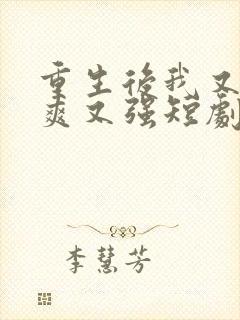 重生後我又
爽又强短劇
李慧芳